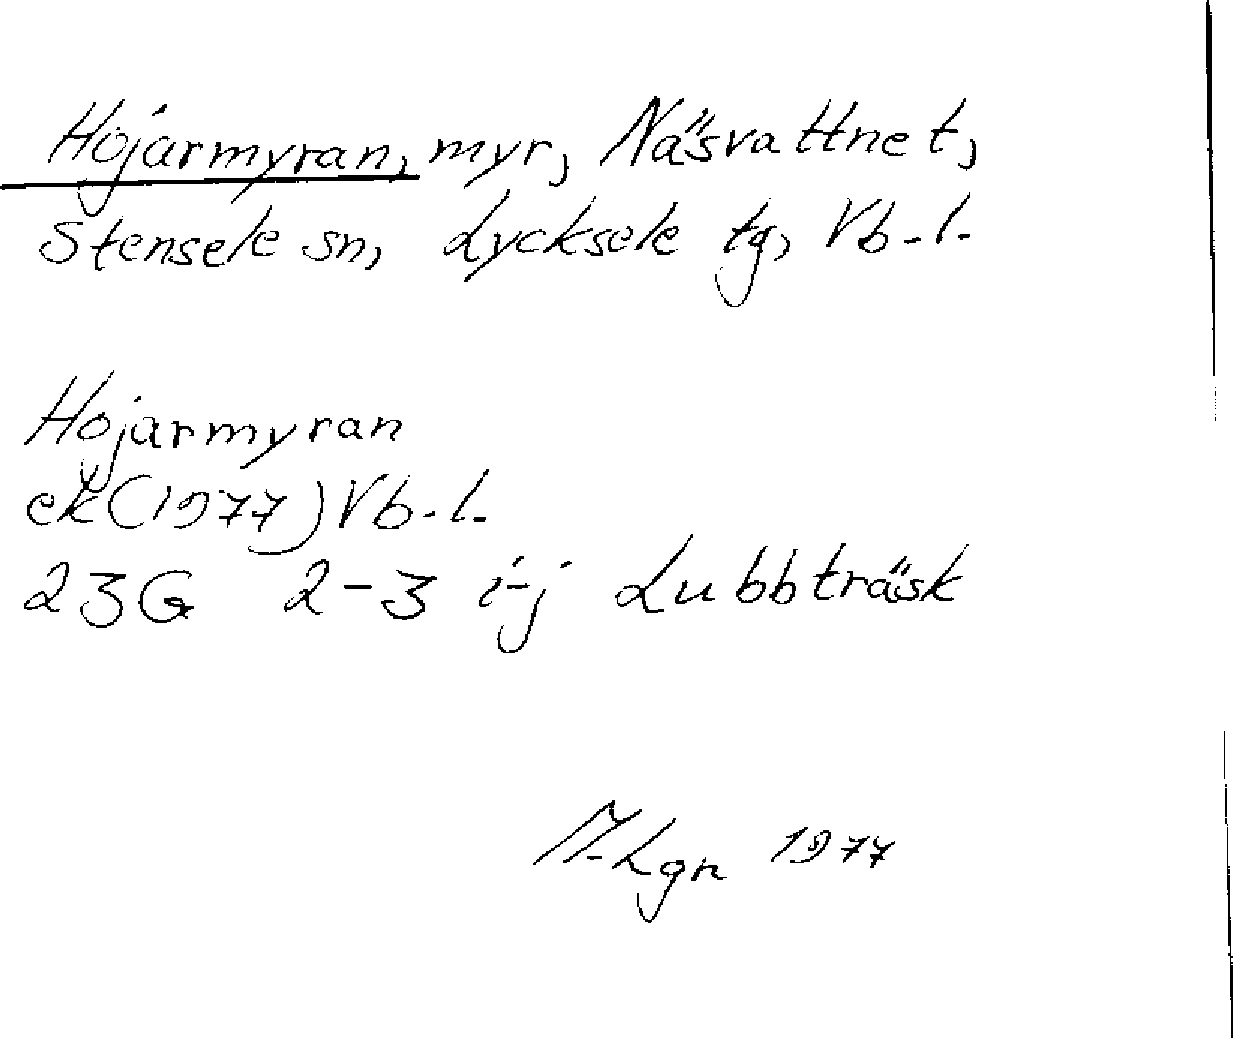 Hojarmyran, myr, Näsvattnet,
Stensele sn, Lycksele tg, Vb-l.
Hojarmyran
ek (1977) Vb-l.
23G 2-3 i-j Lubbträsk
M-Lgn 1977